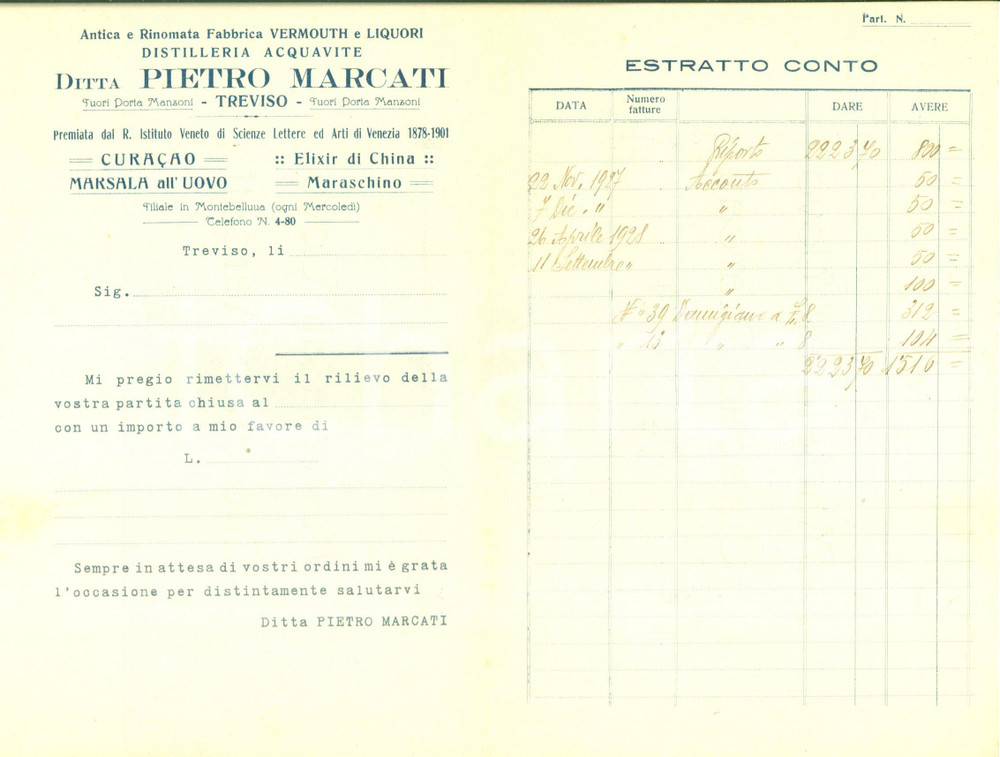 Antica e Rinomata Fabbrica VERMOUTH e LIQUORI
DISTILLERIA ACQUAVITE
DITTA PIETRO MARCATI
Fuori Porta Manzoni - TREVISO - Fuori Porta Manzoni
Premiata dal R. Istituto Veneto di Scienze Lettere ed Arti di Venezia 1878-1901
CURAÇAO :: Elixir di China ::
MARSALA all' UOVO Maraschino
Filiale in Montebelluua (ogni Mercoledì)
Telefono N. 4-80
Treviso, li
Sig.
Mi pregio rimettervi il rilievo della
vostra partita chiusa al
con un importo a mio favore di
L.
Sempre in attesa di vostri ordini mi è grata
l'occasione per distintamente salutarvi
Ditta PIETRO MARCATI
Part. N.
ESTRATTO CONTO
DATA Numero fatture DARE AVERE
Riporto 2223,70 800 =
22 Nov. 1927 Acconto 50 =
7 Dic. " " 50 =
26 Aprile 1928 " 50 =
11 Settembre " " 50 =
" 100 =
N° 39 Damigiane a £ 8 312 =
" 13 " " 8 104 =
2223,70 1516 =